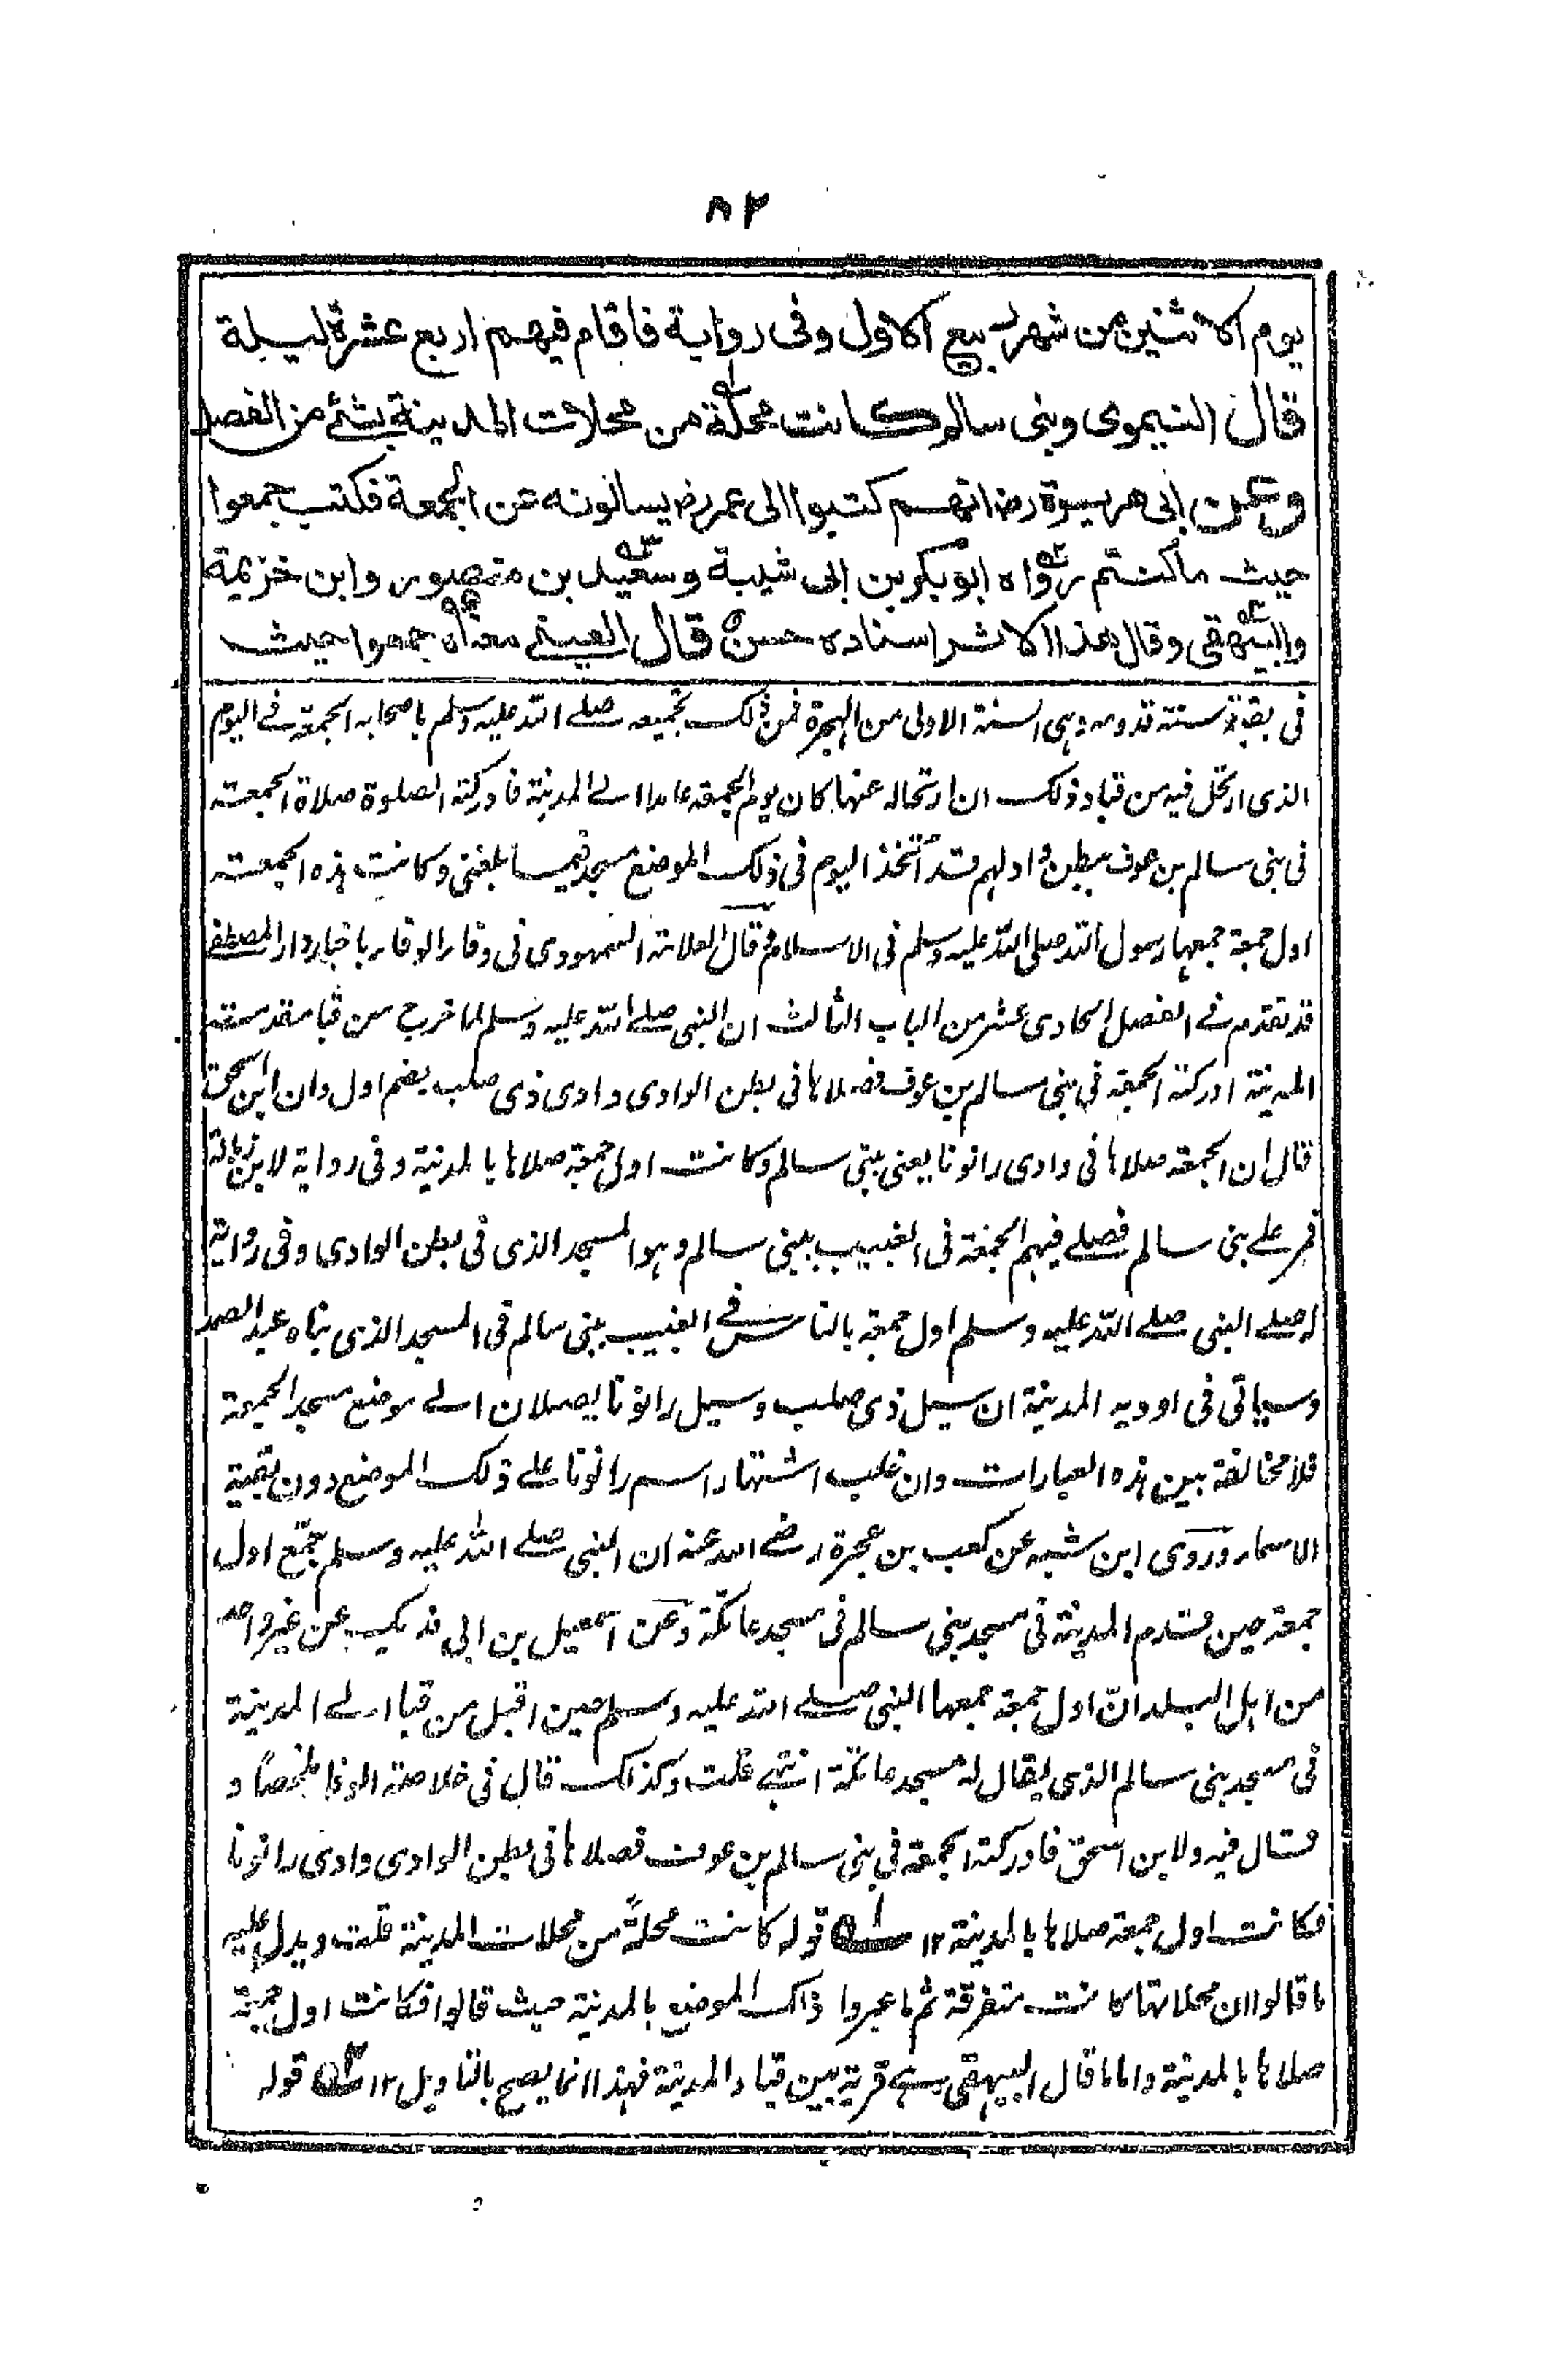 ٨٢
يوم الاثنين من شهر ربيع الاول وفى رواية فاقام فيهم اربع عشرة ليلة
قال النيموى وبنى سالم كانت محلة من محلات المدينة بشئ من الفصل
وعن ابى هريرة رضـ انهم كتبوا الى عمر رضـ يسالونه عن الجمعة فكتب جمعوا
حيث ما كنتم رواه ابو بكر بن ابى شيبة وسعيد بن منصور وابن خزيمة
والبيهقى وقال هذا الاثر اسناده حسن قال العينى معناه جمعوا حيث
فى بقية سنة قدومه وہى السنة الاولى من الہجرة فمن ذلک تجميعه صلے اللہ عليه وسلم باصحابه الجمعة فے اليوم
الذى ارتحل فيه من قباء وذلک ان ارتحاله عنہا كان يوم الجمعة عامدا الے المدينة فادركته الصلوة صلاة الجمعة
فى بنى سالم بن عوف ببطن واد لہم قد اتخذ اليوم فى ذلک الموضع مسجد فيما بلغنى وكانت ہذه الجمعة
اول جمعة جمعہا رسول اللہ صلى اللہ عليه وسلم فى الاسلام قال العلامة السمہودى فى وفاء الوفاء باخبار دار المصطفے
قد تقدم فے الفصل الحادى عشر من الباب الثالث ان النبى صلے اللہ عليه وسلم لما خرج من قبا مقدمه
المدينة ادركته الجمعة فى بنى سالم بن عوف فصلاہا فى بطن الوادى وادى ذى صلب بضم اول وان ابن اسحق
قال ان الجمعة صلاہا فى وادى رانونا يعنى ببنى سالم وكانت اول جمعة صلاہا بالمدينة وفى رواية لابن زبالة
فمر علے بنى سالم فصلے فيہم الجمعة فى الغبيب ببنى سالم وہو المسجد الذى فى بطن الوادى وفى رواية
له صلے النبى صلے اللہ عليه وسلم اول جمعة بالناس فے الغبيب ببنى سالم فى المسجد الذى بناه عبد الصمد
وسياتى فى اودية المدينة ان سيل ذى صلب وسيل رانونا يصلان الے موضع مسجد الجمعة
فلا مخالفة بين ہذه العبارات وان غلب اشتہار اسم رانونا علے ذلک الموضع دون بقية
الاسماء وروى ابن شبه عن كعب بن عجرة رضے اللہ عنہ ان النبى صلے اللہ عليه وسلم جمّع اول
جمعة حين قدم المدينة فى مسجد بنى سالم فى مسجد عاتكة وعن اسمعيل بن ابى فديک عن غير واحد
من اہل البلد انّ اول جمعة جمعہا النبى صلے اللہ عليه وسلم حين اقبل من قبا الے المدينة
فى مسجد بنى سالم الذى يقال له مسجد عاتكة انتہے قلت وكذلک قال فى خلاصة الوفا ملخصاً و
قال فيه ولابن اسحق فادركته الجمعة فى بنى سالم بن عوف فصلاہا فى بطن الوادى وادى رانونا
فكانت اول جمعة صلاہا بالمدينة ١٢ قوله كانت محلةً من محلات المدينة قلت ويدل عليه
ما قالوا ان محلاتہا كانت متفرقة ثم ما عبروا ذلک الموضع بالمدينة حيث قالوا فكانت اول جمعة
صلاہا بالمدينة واما ما قال البيہقى ہے قرية بين قباء والمدينة فہذا انما يصح بالتاويل ١٢ قوله